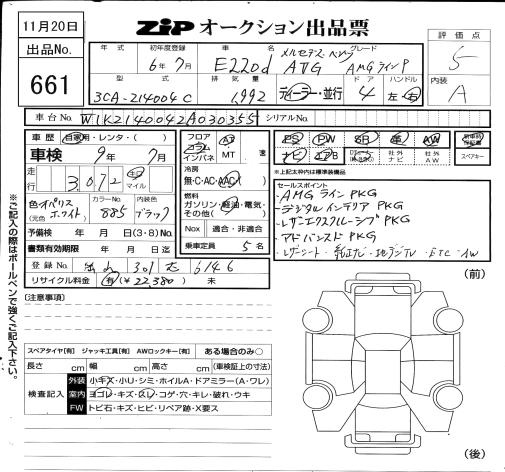 11月20日
ZiP オークション出品票
出品No.
661
評価点
5
内装
A
年式 初年度登録 車名 グレード
6年7月 E220d メルセデス・ベンツ AMGライン
型式 排気量 ドア ハンドル
3CA-214004C 1,992 ディーラー・並行 4 左・右
車台No. シリアルNo.
車歴 自家用・レンタ・( )
車検 9年 7月
走行 3072 キロ マイル
色 オパリスホワイト (元色) カラーNo. 885 内装色 ブラック
予備検 年 月 日(3・8)No.
書類有効期限 年 月 日迄
登録No. 301 6146
リサイクル料金 有(¥22,380) 未
フロア コラム インパネ AT MT 速
冷房 無・C・AC・AAC( )
燃料 ガソリン・軽油・電気・その他( )
Nox 適合・非適合
乗車定員 5名
PS PW SR 革 AW
ナビ エアB 社外ナビ 社外AW
新車時保証書
スペアキー
※上記太枠内は標準装備品
セールスポイント
・AMGライン PKG
・デジタルインテリア PKG
・レザーエクスクルーシブ PKG
・アドバンスド PKG
・レザーシート・純正ナビ・地デジTV・ETC・AW
※ご記入の際はボールペンで強くご記入下さい。
(注意事項)
スペアタイヤ【有】 ジャッキ工具【有】 AWロックキー【有】 ある場合のみ○
長さ cm 幅 cm 高さ cm (車検証上の寸法)
検査記入
外装 小キズ・小U・シミ・ホイルA・ドアミラー(A・ワレ)
室内 ヨゴレ・キズ・スレ・コゲ・穴・キレ・破れ・ウキ
FW トビ石・キズ・ヒビ・リペア跡・X要ス
(前)
(後)